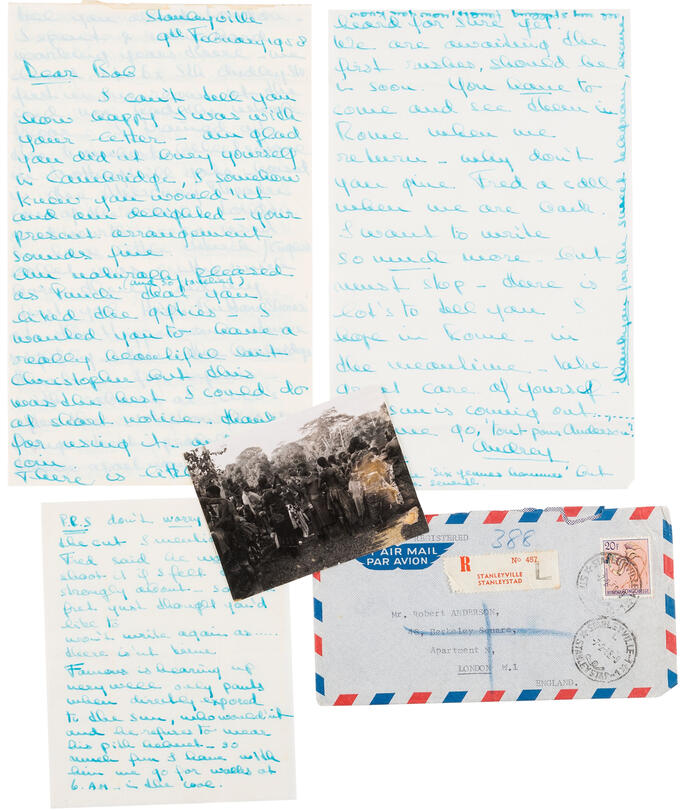 Stanleyville
9th February 1958
Dear Bob
I can't tell you
how happy I was with
your letter – am glad
you did'nt bury yourself
in Cambridge, I somehow
knew you would'nt
and am delighted – your
present arrangement
sounds fine.
Am naturally pleased
(and so flattered)
as Punch that you
liked the gifties – I
wanted you to have a
really beautiful
Christopher, but this
was the best I could do
at short notice. Thank
for using it
coin.
There is
heard for sure yet.
We are awaiting the
first rushes, should be
in soon. You have to
come and see them in
Rome when we
return – why don't
you give Fred a call
when we are back.
I want to write
so much more – but
must stop – there is
lot's to tell you I
hope in Rome – in
the meantime – take
great care of yourself.
sun is coming out......
me go, 'tout pour Anderson'
Audrey
'six jeunes hommes' but
seventh.
thankyou for the sweet telegram,
P.P.S don't worry
the cut I
Fred said he
shoot it if I feel
strongly about
fret just thought you'd
like to
won't write again as.....
there is'nt time
Famous is bearing up
very well only pants
when directly exposed
to the sun, who would'nt
and he refuses to wear
his pith helmet – so
much fun I have with
him we go for walks at
6. A.M. in the cool.
REGISTERED
388
AIR MAIL
PAR AVION
R
No 457
STANLEYVILLE
STANLEYSTAD
L
20F
Mr. Robert ANDERSON,
16, Berkeley Square,
Apartment N,
LONDON W.1
ENGLAND.
STANLEYVILLE-1
STANLEYSTAD-1